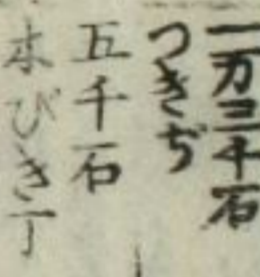 一万三千石
つきぢ
五千石
木びき丁